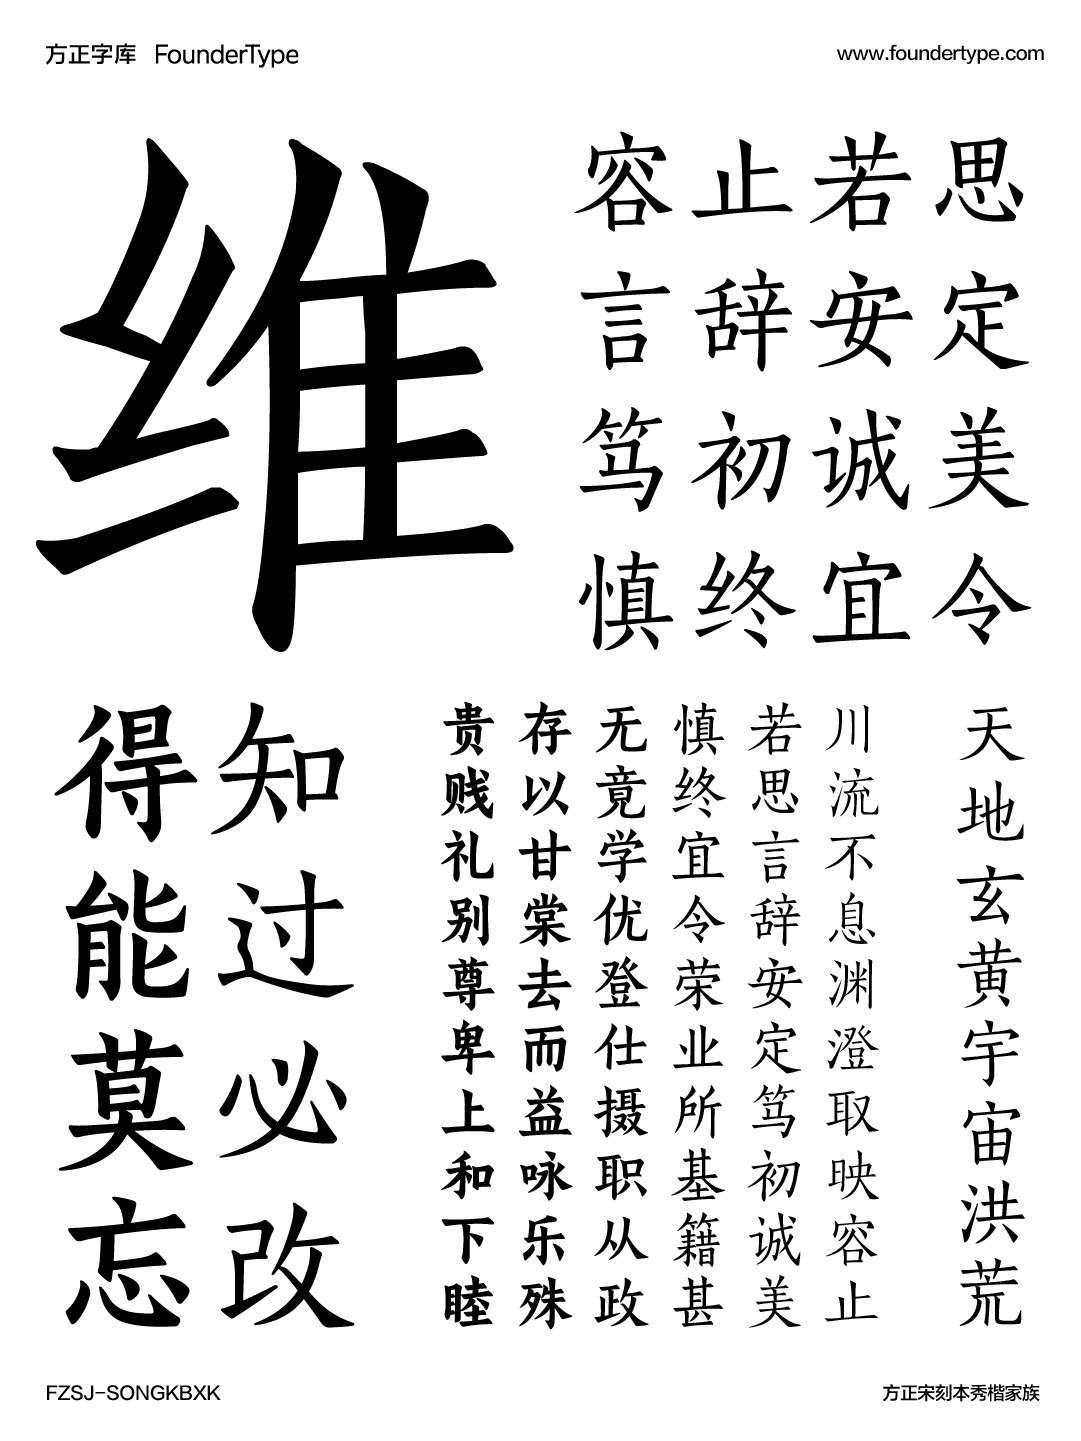 方正字库 FounderType
www.foundertype.com
维
容止若思
言辞安定
笃初诚美
慎终宜令
知过必改
得能莫忘
天地玄黄宇宙洪荒
川流不息渊澄取映容止
若思言辞安定笃初诚美
慎终宜令荣业所基籍甚
无竟学优登仕摄职从政
存以甘棠去而益咏乐殊
贵贱礼别尊卑上和下睦
FZSJ-SONGKBXK
方正宋刻本秀楷家族